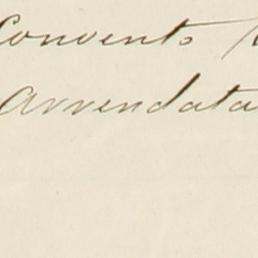 Convents
Arrendata